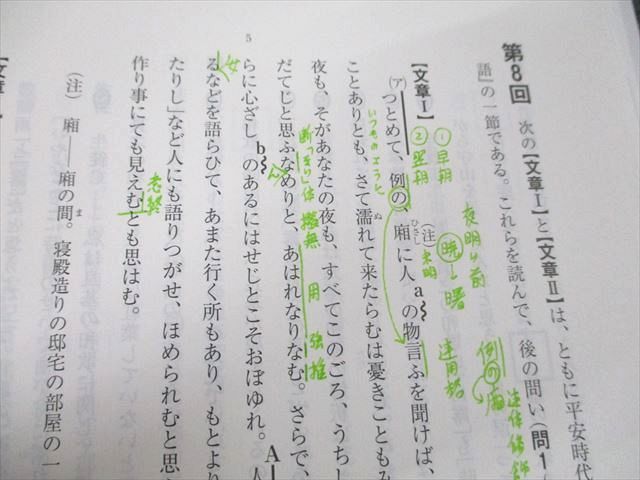 第8回 次の【文章Ⅰ】と【文章Ⅱ】は、ともに平安時代
語』の一節である。これらを読んで、後の問い(問1
例の廂
連体修飾
夜明け前
暁→曙
未明
連用格
【文章Ⅰ】
①早朝
②翌朝
(ア)つとめて、例の、廂に人の物言ふを聞けば、
(注)
ひさし
a
いつものように
ことありとも、さて濡れて来たらむは憂きこともみ
ぬ
夜も、そがあなたの夜も、すべてこのごろ、うちし
用 強 推
だてじと思ふなめりと、あはれなりなむ。さらで、
らに心ざしのあるにはせじとこそおぼゆれ。人
b
A
るなどを語らひて、あまた行く所もあり、もとより
女
たりし」など人にも語りつがせ、ほめられむと思
作り事にても見えむとも思はむ。
(注) 廂――廂の間。寝殿造りの邸宅の部屋の一
ま
5